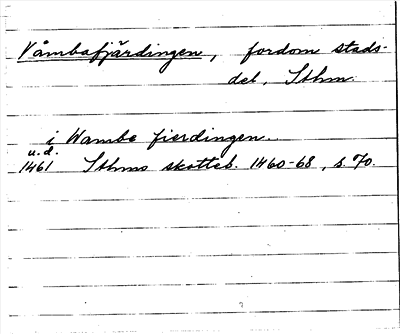 Våmbafjärdingen, fordom stads-
del, Sthm.
i Wamba fierdingen.
u.d.
1461 Sthms skatteb. 1460-68, s. 70.